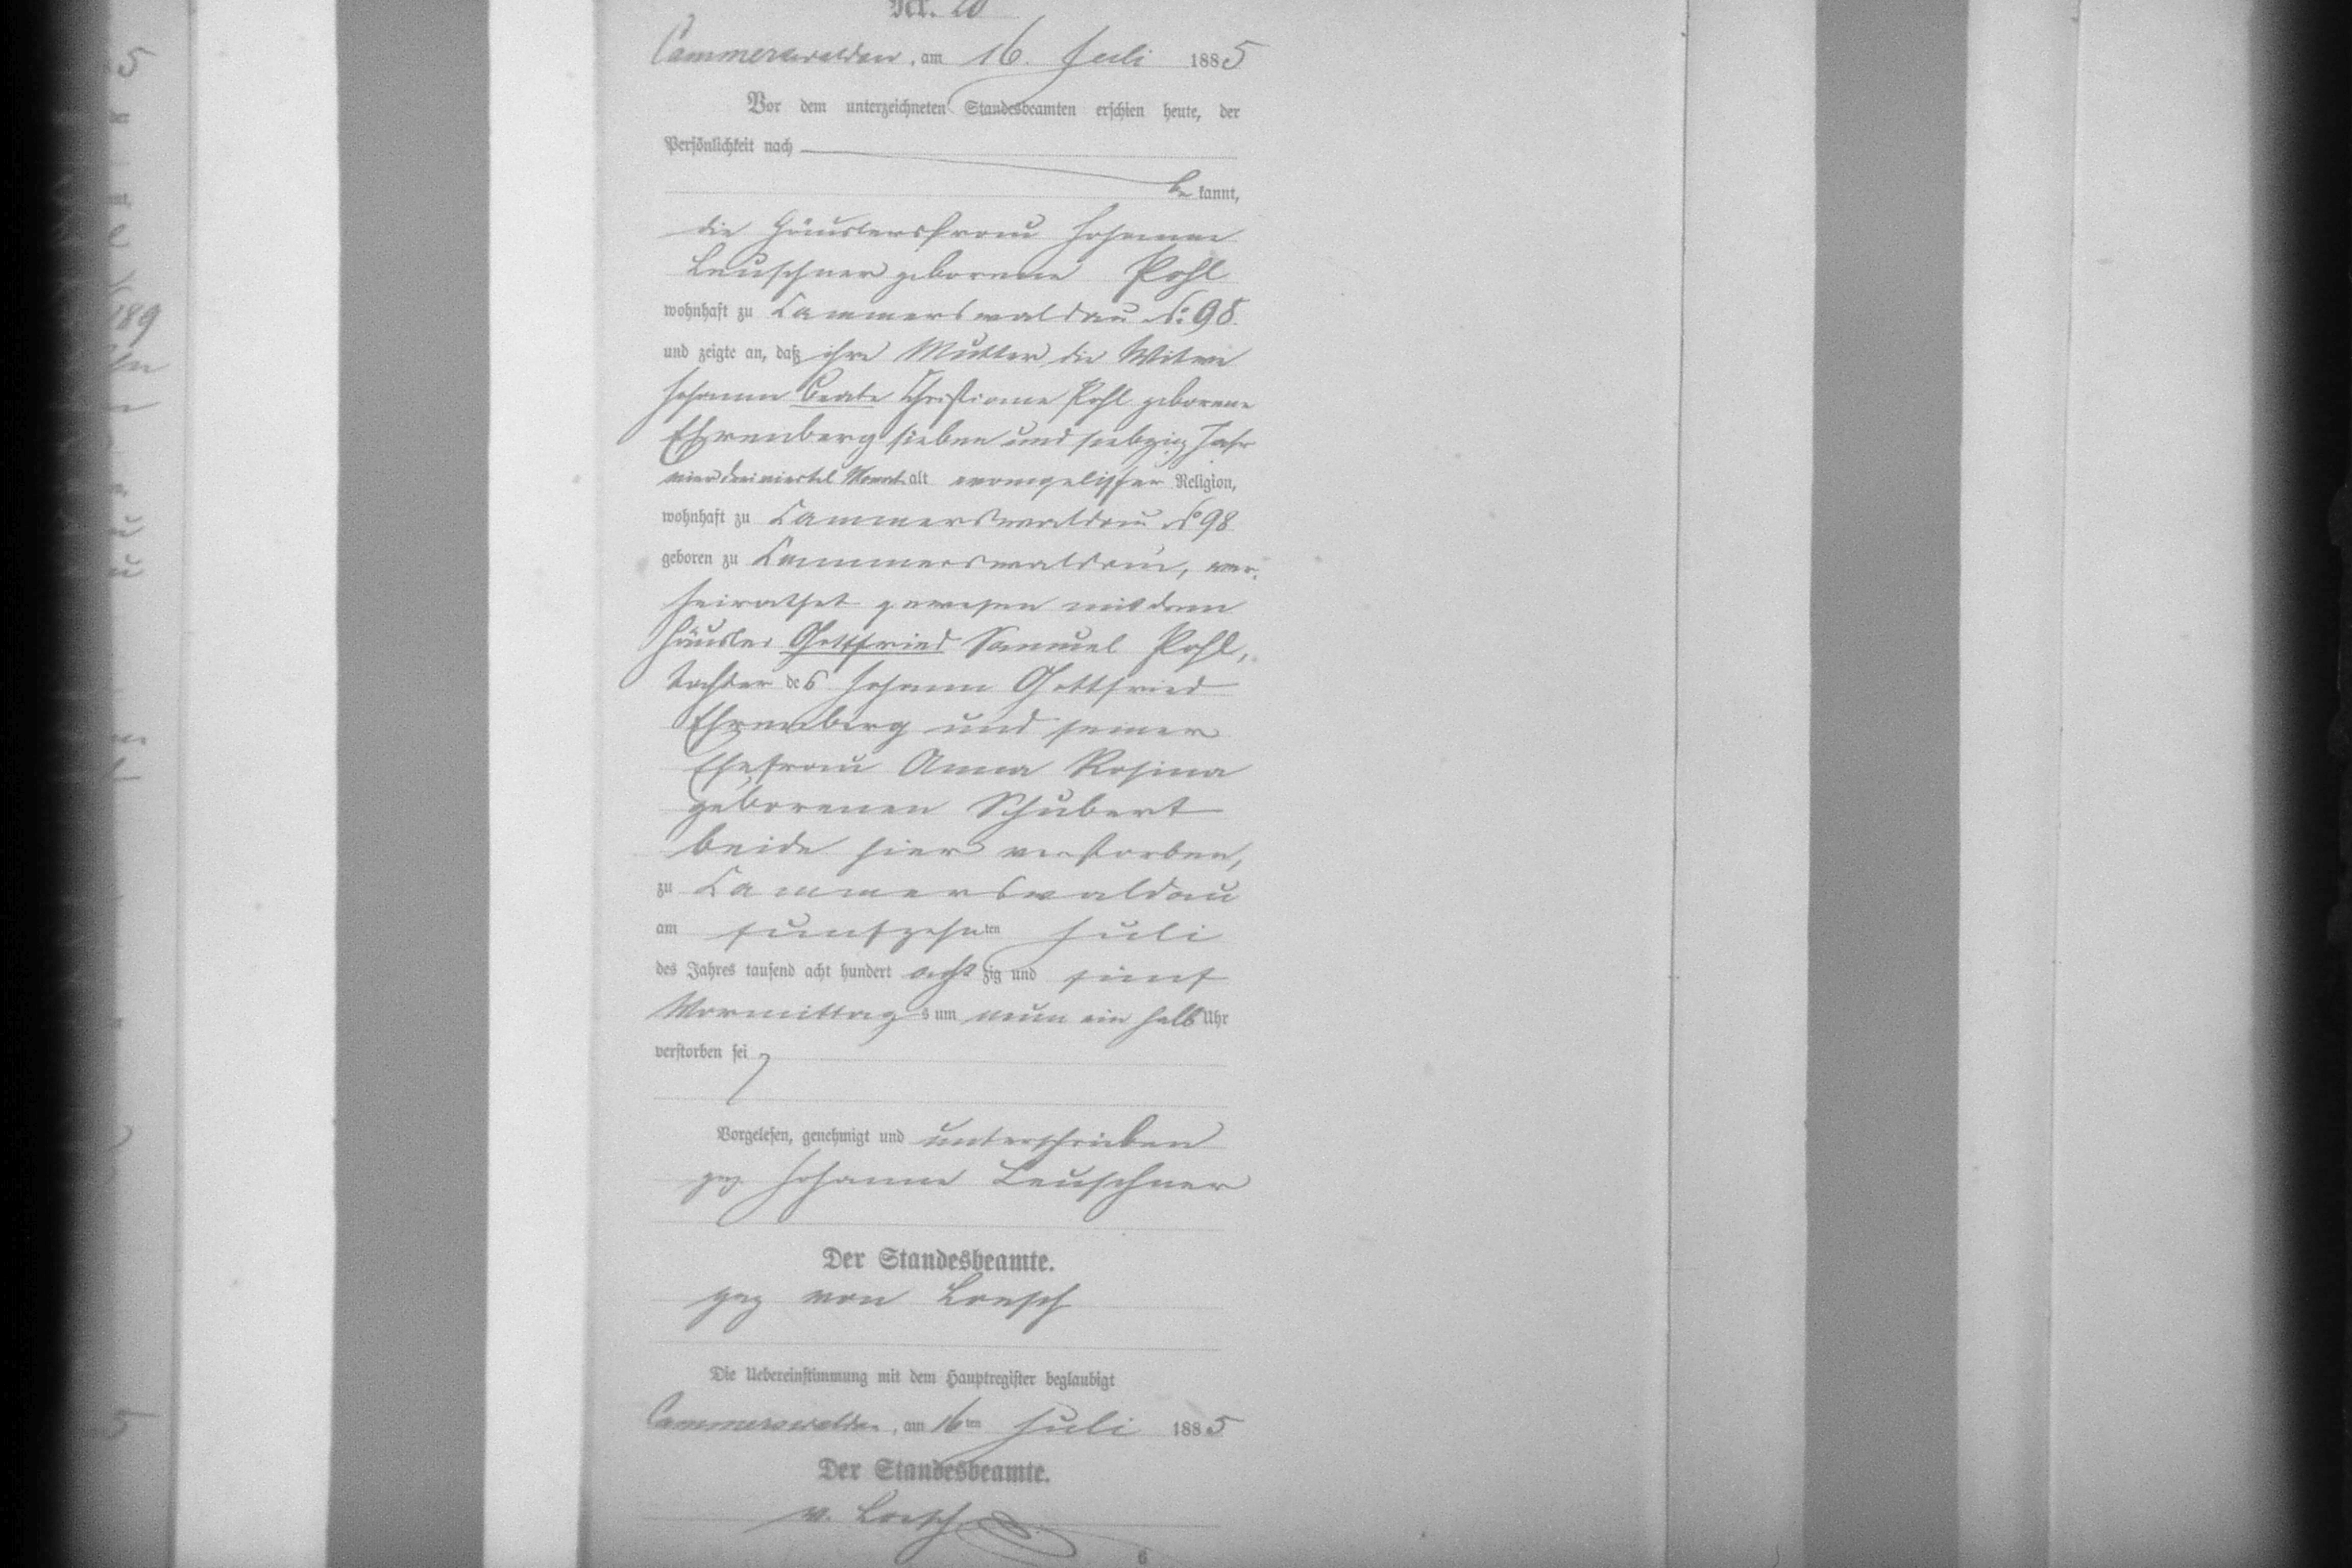 Nr. 20
Cammerswaldau, am 16. Juli 1885
Vor dem unterzeichneten Standesbeamten erschien heute, der
Persönlichkeit nach
be kannt,
die Häuslersfrau Johanne
Leuschner geborene Pohl
wohnhaft zu Cammerswaldau No: 98
und zeigte an, daß ihre Mutter, die Witwe
Johanne Beate Christiane Pohl geborene
Ehrenberg sieben und siebzig Jahr
vier dreiviertel Monat alt evangelischer Religion,
wohnhaft zu Cammerswaldau No 98
geboren zu Cammerswaldau, ver-
heirathet gewesen mit dem
Häusler Gottfried Samuel Pohl,
Tochter des Johann Gottfried
Ehrenberg und seiner
Ehefrau Anna Rosina
geborenen Schubert
beide hier verstorben,
zu Cammerswaldau
am funfzehnten Juli
des Jahres tausend acht hundert acht zig und fünf
Vormittags um neun ein halb Uhr
verstorben sei
Vorgelesen, genehmigt und unterschrieben
gez Johanne Leuschner
Der Standesbeamte.
gez von Loesch
Die Uebereinstimmung mit dem Hauptregister beglaubigt
Cammerswaldau, am 16ten Juli 1885
Der Standesbeamte.
v. Loesch
6